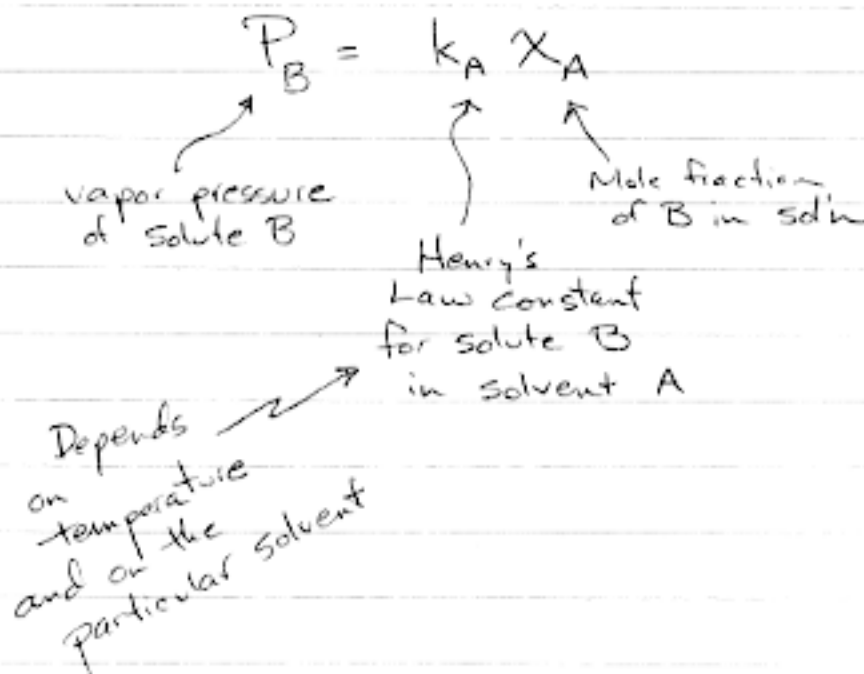 P_B = k_A χ_A
vapor pressure
of solute B
Mole fraction
of B in sol'n
Henry's
Law constant
for solute B
in solvent A
Depends
on
temperature
and on the
particular solvent